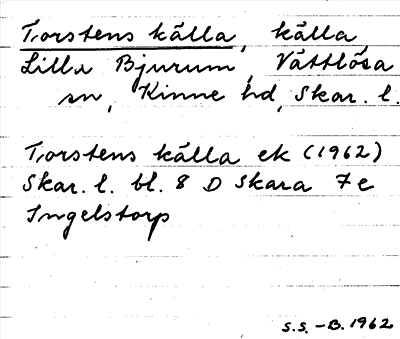 Torstens källa, källa
Lilla Bjurum, Vättlösa
sn, Kinne hd, Skar. l.
Torstens källa ek (1962)
Skar. l. bl. 8 D Skara 7 e
Ingelstorp
S.S. – B. 1962